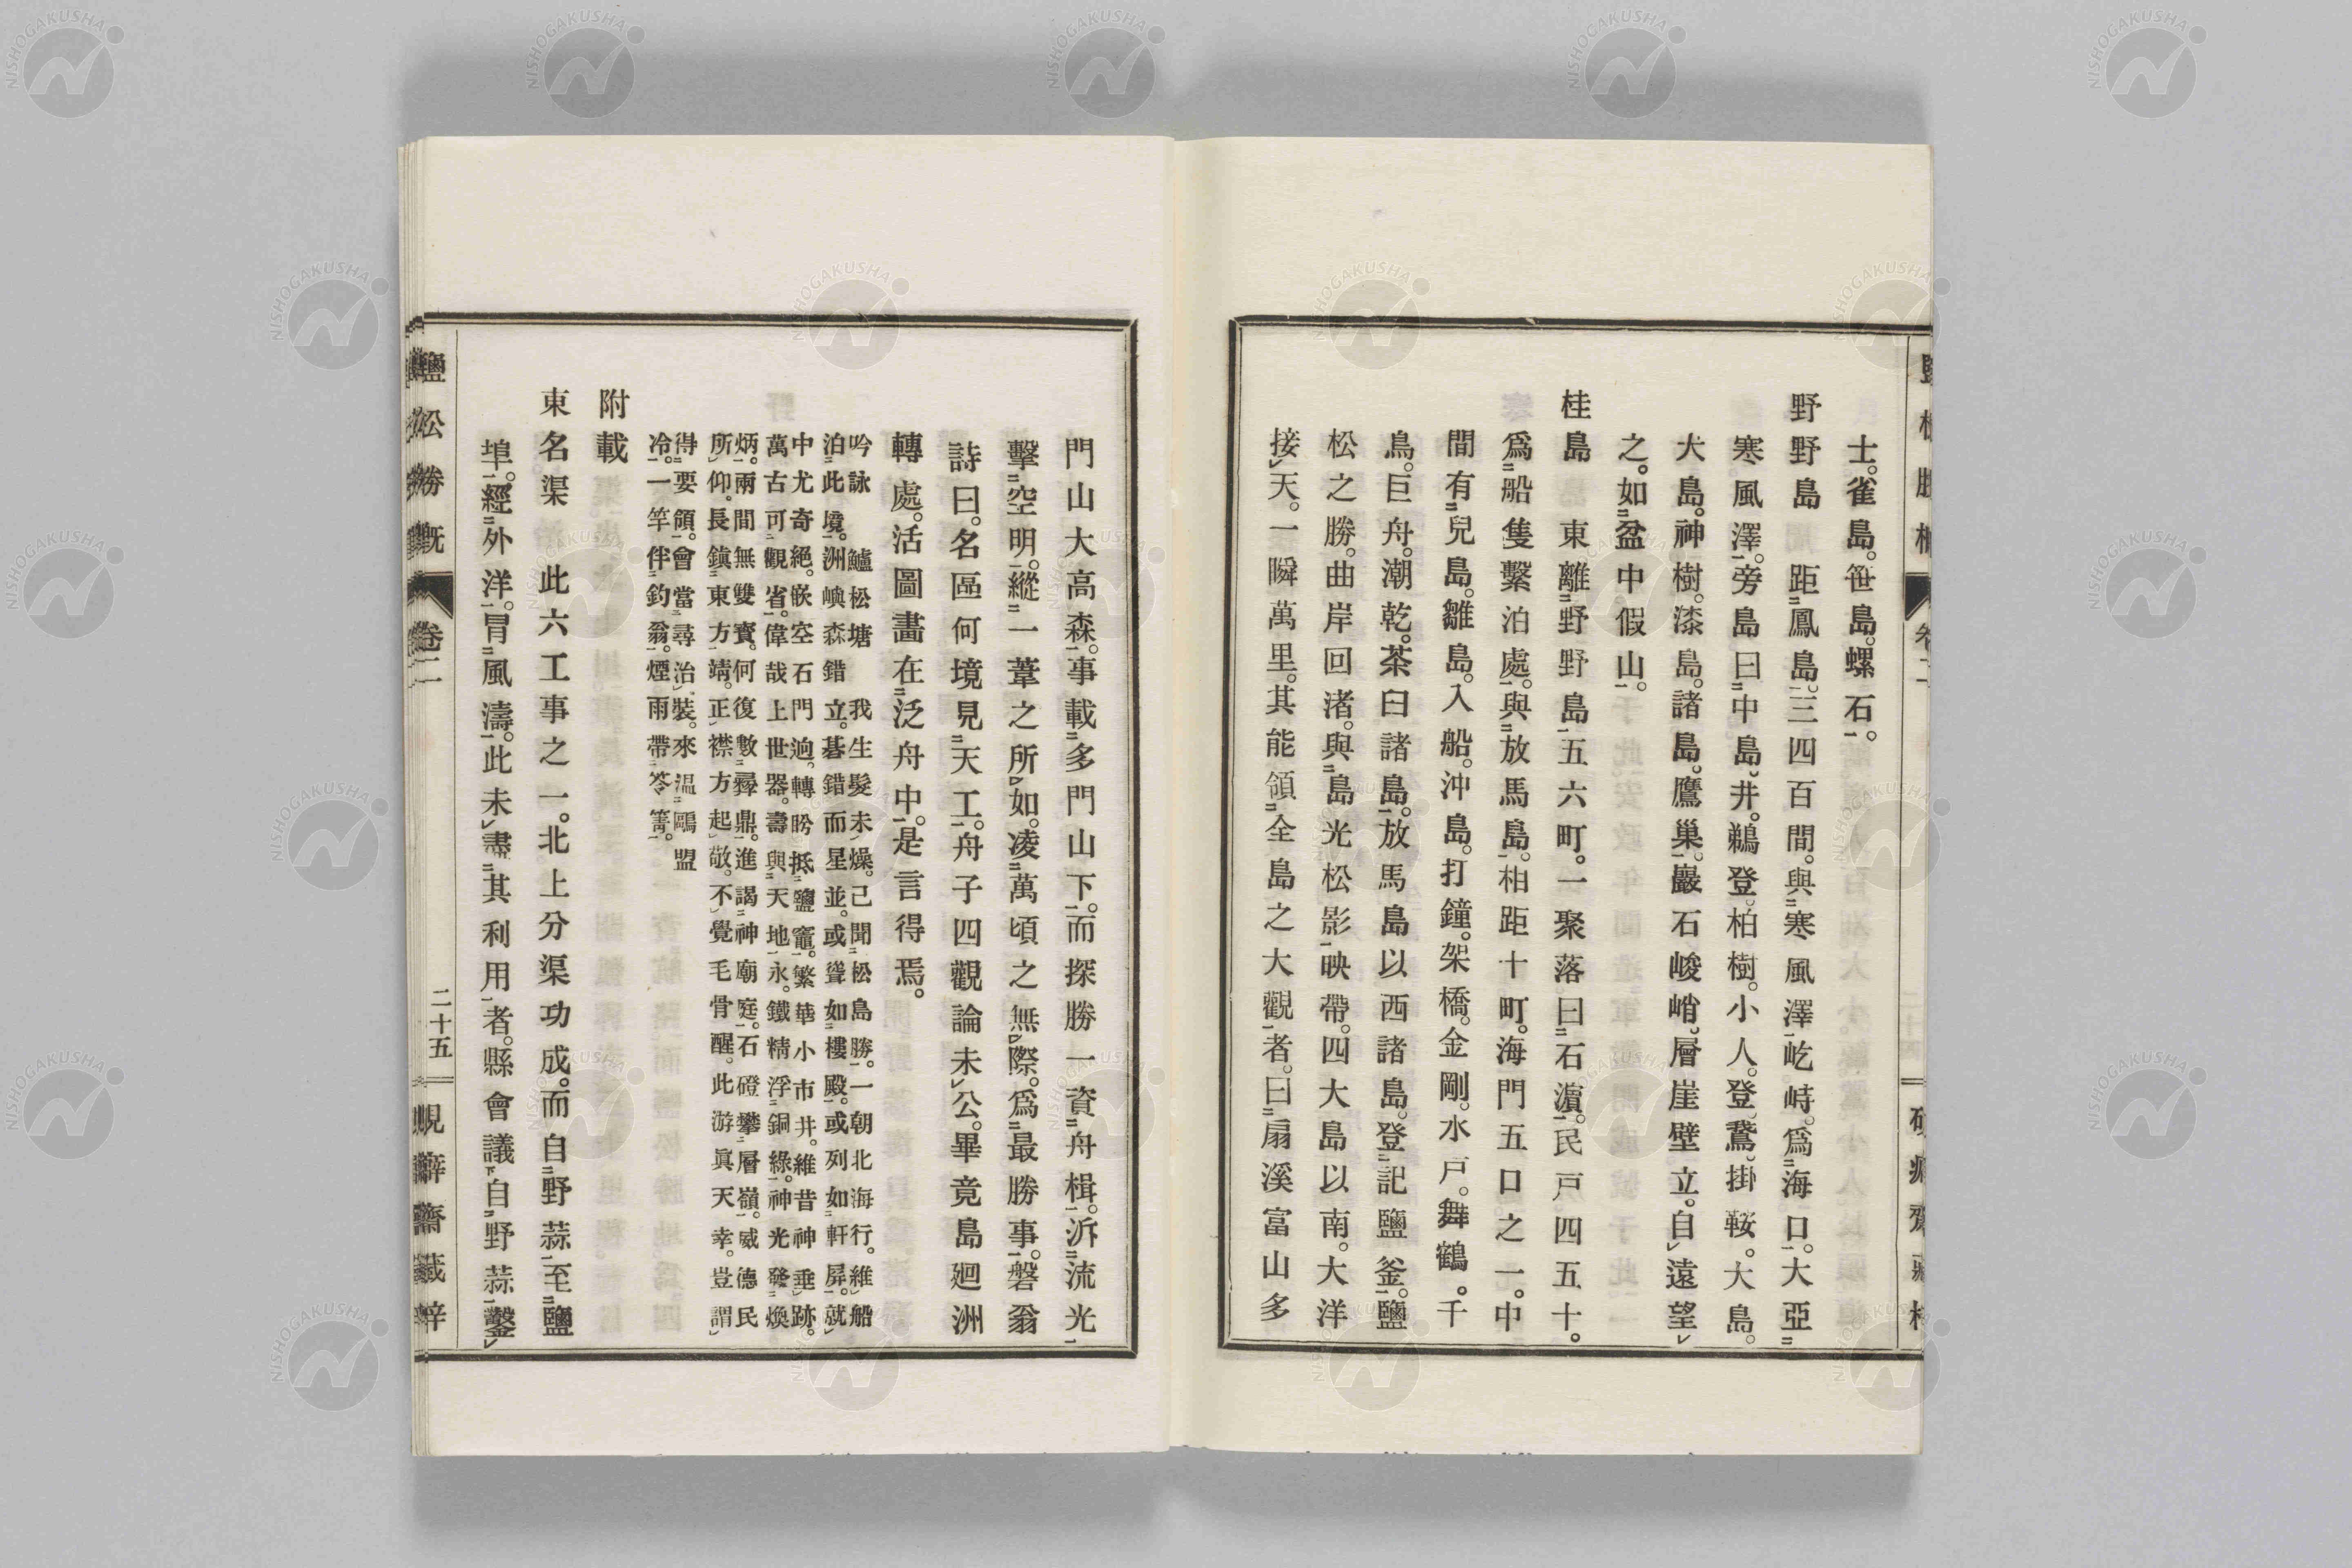 士。雀島。笹島。螺石。
野野島　距鳳島。三四百間。與寒風澤屹峙。爲海口。大亞
寒風澤。旁島曰中島、井。鵜登。柏樹。小人。登鵞。掛鞍。大島。
大島。神樹。漆島。諸島。鷹巢。巖石峻峭、層崖壁立。自遠望
之。如盆中假山。
桂島　東離野野島五六町。一聚落曰石濵。民戸四五十。
爲船隻繫泊處。與放馬島。相距十町。海門五口之一。中
間有兒島。雛島。入船。沖島。打鐘。架橋。金剛。水戸。舞鶴。千
鳥。巨舟。潮乾。茶臼諸島。放馬島以西諸島。登記鹽釜。鹽
松之勝。曲岸回渚。與島光松影映帶。四大島以南。大洋
接天。一瞬萬里。其能領全島之大觀者。曰扇溪富山多
門山大高森。事載多門山下。而探勝一資舟楫。泝流光
擊空明。縱一葦之所如。凌萬頃之無際。爲最勝事。磐翁
詩曰。名區何境見天工。舟子四觀論未公。畢竟島廻洲
轉處。活圖畫在泛舟中。是言得焉。
吟詠　鱸松塘　我生髮未燥。己聞松島勝。一朝北海行。維船
泊此境。洲嶼森錯立。碁錯而星並。或聳如樓殿。或列如軒屏。就
中尤奇絕。嵌空石門逈。轉眄抵鹽竈。繁華小市井。維昔神垂跡。
萬古可觀省。偉哉上世器。壽與天地永。鐵精浮銅綠。神光發煥
炳。兩間無雙寳。何復數彛鼎。進謁神廟庭。石磴攀層嶺。威德民
所仰。長鎭東方靖。正襟方起敬。不覺毛骨醒。此游眞天幸。豈謂
得要領。會當尋治裝。來溫鷗盟
冷。一竿伴釣翁。煙雨帶笭箐。
附載
東名渠　此六工事之一。北上分渠功成。而自野蒜至鹽
埠。經外洋。冒風濤。此未盡其利用者。縣會議自野蒜鑿
鹽松勝概　卷二　二十五　硯癖齋藏梓